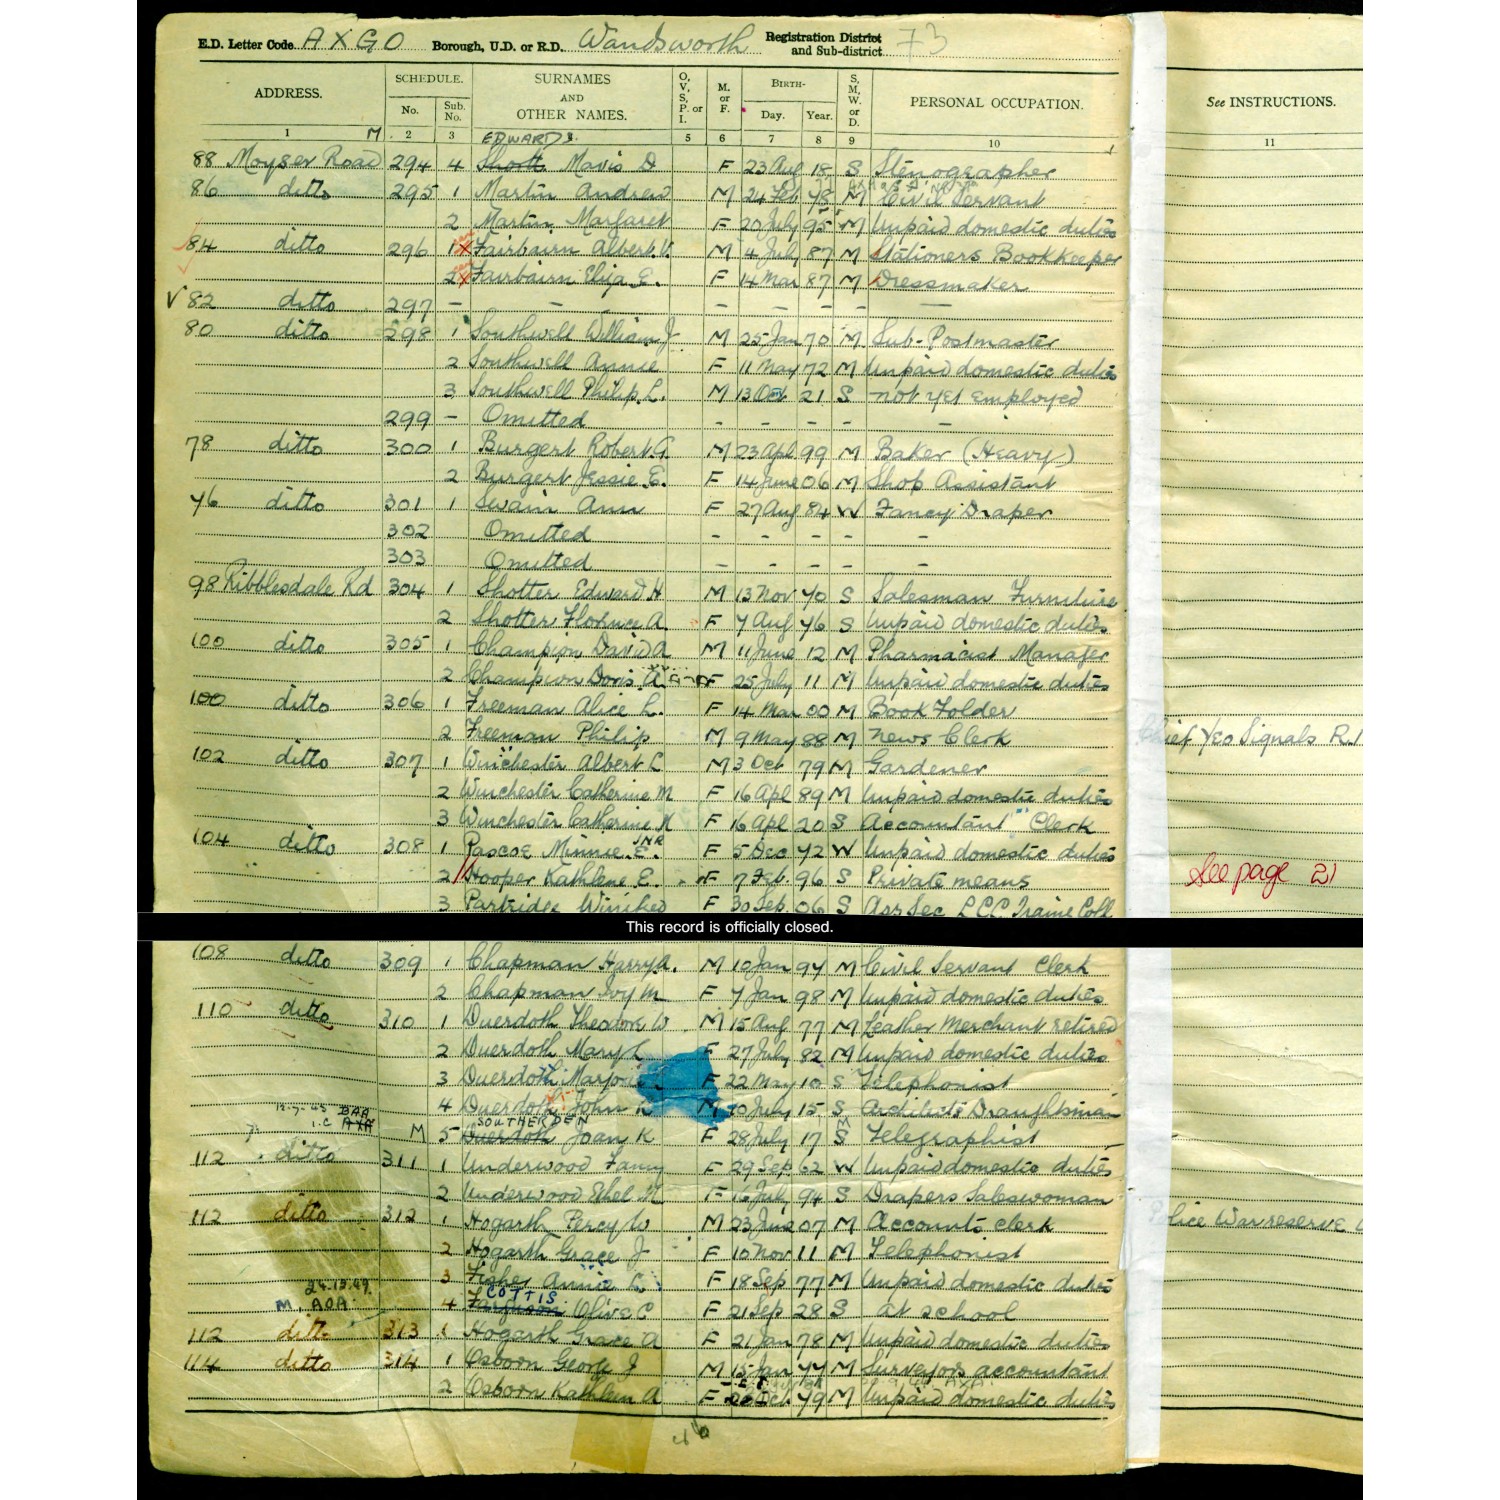 E.D. Letter Code AXGO Borough, U.D. or R.D. Wandsworth Registration District and Sub-district 73
ADDRESS. SCHEDULE. No. Sub. No. SURNAMES AND OTHER NAMES. O, V, S, P. or I. M. or F. BIRTH- Day. Year. S, M, W. or D. PERSONAL OCCUPATION. See INSTRUCTIONS.
1 M 2 3 5 6 7 8 9 10 11
EDWARDS
88 Moyser Road 294 4 Shott Mavis D F 23 Aug 18 S Stenographer
86 ditto 295 1 Martin Andrew M 24 Feb 98 M Civil Servant
2 Martin Margaret F 20 July 95 M Unpaid domestic duties
84 ditto 296 1 Fairbairn Albert V. M 4 July 87 M Stationers Bookkeeper
2 Fairbairn Eliza E. F 14 Mar 87 M Dressmaker
√ 82 ditto 297 – – – – – – –
80 ditto 298 1 Southwell William J. M 25 Jan 70 M Sub-Postmaster
2 Southwell Annie F 11 May 72 M Unpaid domestic duties
3 Southwell Philip L. M 13 Oct 21 S not yet employed
299 – Omitted – – – – –
78 ditto 300 1 Burgert Robert G. M 23 Apl 99 M Baker (Heavy)
2 Burgert Jessie E. F 14 June 06 M Shop Assistant
76 ditto 301 1 Swain Ann F 27 Aug 84 W Fancy Draper
302 Omitted – – – – –
303 Omitted – – – – –
98 Ribblesdale Rd 304 1 Shotter Edward H M 13 Nov 70 S Salesman Furniture
2 Shotter Florence A. F 7 Aug 76 S Unpaid domestic duties
100 ditto 305 1 Champion David A M 11 June 12 M Pharmacist Manager
2 Champion Doris A F 25 July 11 M Unpaid domestic duties
100 ditto 306 1 Freeman Alice L. F 14 Mar 00 M Book Folder
2 Freeman Philip M 9 May 88 M News Clerk Chief Yeo Signals R.
102 ditto 307 1 Winchester Albert L M 3 Oct 79 M Gardener
2 Winchester Catherine M F 16 Apl 89 M Unpaid domestic duties
3 Winchester Catherine M F 16 Apl 20 S Accountant Clerk
JNR
104 ditto 308 1 Pascoe Minnie E. F 5 Dec 72 W Unpaid domestic duties
2 Hooper Kathlene E. F 7 Feb. 96 S Private means See page 21
3 Partridge Winifred F 30 Sep. 06 S Asr Sec L.C.C. Traine Coll
This record is officially closed.
108 ditto 309 1 Chapman Harry A. M 10 Jan 94 M Civil Servant Clerk
2 Chapman Ivy M F 7 Jan 98 M Unpaid domestic duties
110 ditto 310 1 Duerdoth Theodore W M 15 Aug 77 M Leather Merchant retired
2 Duerdoth Mary L F 27 July 82 M Unpaid domestic duties
3 Duerdoth Marjorie F 22 May 10 S Telephonist
4 Duerdoth John M 20 July 15 S Architects Draughtsman
12-7-45 BAA
SOUTHERDEN M
M 5 Duerdoth Joan K F 28 July 17 S Telegraphist
112 ditto 311 1 Underwood Fanny F 29 Sep. 62 W Unpaid domestic duties
2 Underwood Ethel M F July 94 S Drapers Saleswoman
112 ditto 312 1 Hogarth Percy W M 23 June 07 M Accounts clerk Police War reserve
2 Hogarth Grace J F 10 Nov 11 M Telephonist
3 Fisher Annie L. F 18 Sep 77 M Unpaid domestic duties
24.12.49.
M. AOA. COTTIS
4 Olive C F 21 Sep 28 S at school
112 ditto 313 1 Hogarth Grace A F 21 Jan 78 M Unpaid domestic duties
114 ditto 314 1 Osborn George J M 15 Jan 77 M Surveyors accountant
2 Osborn Kathleen A F 26 Oct. 79 M Unpaid domestic duties